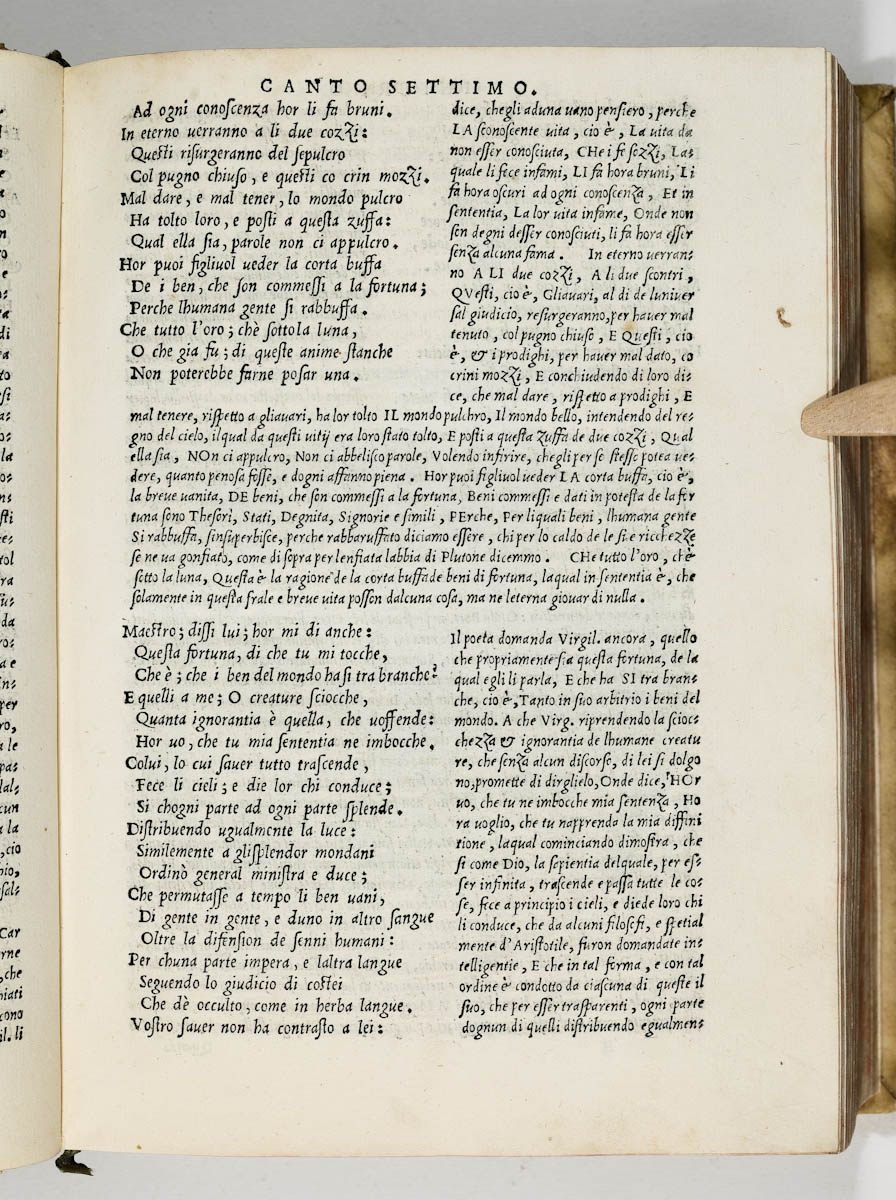 CANTO SETTIMO.
Ad ogni conoscenza hor li fa bruni.
In eterno uerranno a li due cozzi:
Questi risurgeranno del sepulcro
Col pugno chiuso, e questi co crin mozzi.
Mal dare, e mal tener, lo mondo pulcro
Ha tolto loro, e posti a questa zuffa:
Qual ella sia, parole non ci appulcro.
Hor puoi figliuol ueder la corta buffa
De i ben, che son commessi a la fortuna;
Perche lhumana gente si rabbuffa.
Che tutto l'oro; chè sotto la luna,
O che gia fu; di queste anime stanche
Non poterebbe farne posar una.
dice, chegli aduna uano pensiero, perche
LA sconoscente uita, cio è, La uita da
non esser conosciuta, CHe i fe sozzi, La=
quale li fece infami, LI fa hora bruni, Li
fa hora oscuri ad ogni conoscenza, Et in
sententia, La lor uita infame, Onde non
son degni desser conosciuti, li fa hora esser
senza alcuna fama. In eterno uerran=
no A LI due cozzi, A li due scontri,
QVesti, cio è, Gliauari, al di de luniuer
sal giudicio, resurgeranno, per hauer mal
tenuto, col pugno chiuso, E Questi, cio
è, & i prodighi, per hauer mal dato, co
crini mozzi, E conchiudendo di loro di=
ce, che mal dare, rispetto a prodighi, E
mal tenere, rispetto a gliauari, ha lor tolto IL mondo pulchro, Il mondo bello, intendendo del re=
gno del cielo, ilqual da questi uitij era loro stato tolto, E posti a questa zuffa de due cozzi, Qual
ella sia, NOn ci appulcro, Non ci abbelisco parole, Volendo inferire, chegli per se stesso potea ue=
dere, quanto penosa fosse, e dogni affanno piena. Hor puoi figliuol ueder LA corta buffa, cio è,
la breue uanita, DE beni, che son commessi a la fortuna, Beni commessi e dati in potesta de la for
tuna sono Thesori, Stati, Degnita, Signorie e simili, PErche, Per liquali beni, lhumana gente
Si rabbuffa, sinsuperbisce, perche rabbaruffato diciamo essere, chi per lo caldo de le sue ricchezze
se ne ua gonfiato, come di sopra per lenfiata labbia di Plutone dicemmo. CHe tutto l'oro, chè
sotto la luna, Questa è la ragione de la corta buffa de beni di fortuna, laqual in sententia è, che
solamente in questa frale e breue uita posson dalcuna cosa, ma ne leterna giouar di nulla.
Maestro; dissi lui; hor mi di anche:
Questa fortuna, di che tu mi tocche,
Che è; che i ben del mondo ha si tra branche?
E quelli a me; O creature sciocche,
Quanta ignorantia è quella, che uoffende:
Hor uo, che tu mia sententia ne imbocche.
Colui, lo cui sauer tutto trascende,
Fece li cieli; e die lor chi conduce;
Si chogni parte ad ogni parte splende.
Distribuendo ugualmente la luce:
Similemente a glisplendor mondani
Ordinò general ministra e duce;
Che permutasse a tempo li ben uani,
Di gente in gente, e duno in altro sangue
Oltre la difension de senni humani:
Per chuna parte impera, e laltra langue
Seguendo lo giudicio di costei
Che dè occulto, come in herba langue.
Vostro sauer non ha contrasto a lei:
Il poeta domanda Virgil. ancora, quello
che propriamente sia questa fortuna, de la
qual egli li parla, E che ha SI tra bran=
che, cio è, Tanto in suo arbitrio i beni del
mondo. A che Virg. riprendendo la scioc=
chezza & ignorantia de lhumane creatu
re, che senza alcun discorso, di lei si dolgo
no, promette di dirglielo, Onde dice, HOr
uo, che tu ne imbocche mia sentenza, Ho
ra uoglio, che tu napprenda la mia diffini
tione, laqual cominciando dimostra, che
si come Dio, la sepientia delquale, per es=
ser infinita, trascende e passa tutte le co=
se, fece a principio i cieli, e diede loro chi
li conduce, che da alcuni filosofi, e spetial
mente d'Aristotile, furon domandate in=
telligentie, E che in tal forma, e con tal
ordine è condotto da ciascuna di queste il
suo, che per esser trasparenti, ogni parte
dognun di quelli distribuendo egualmen=